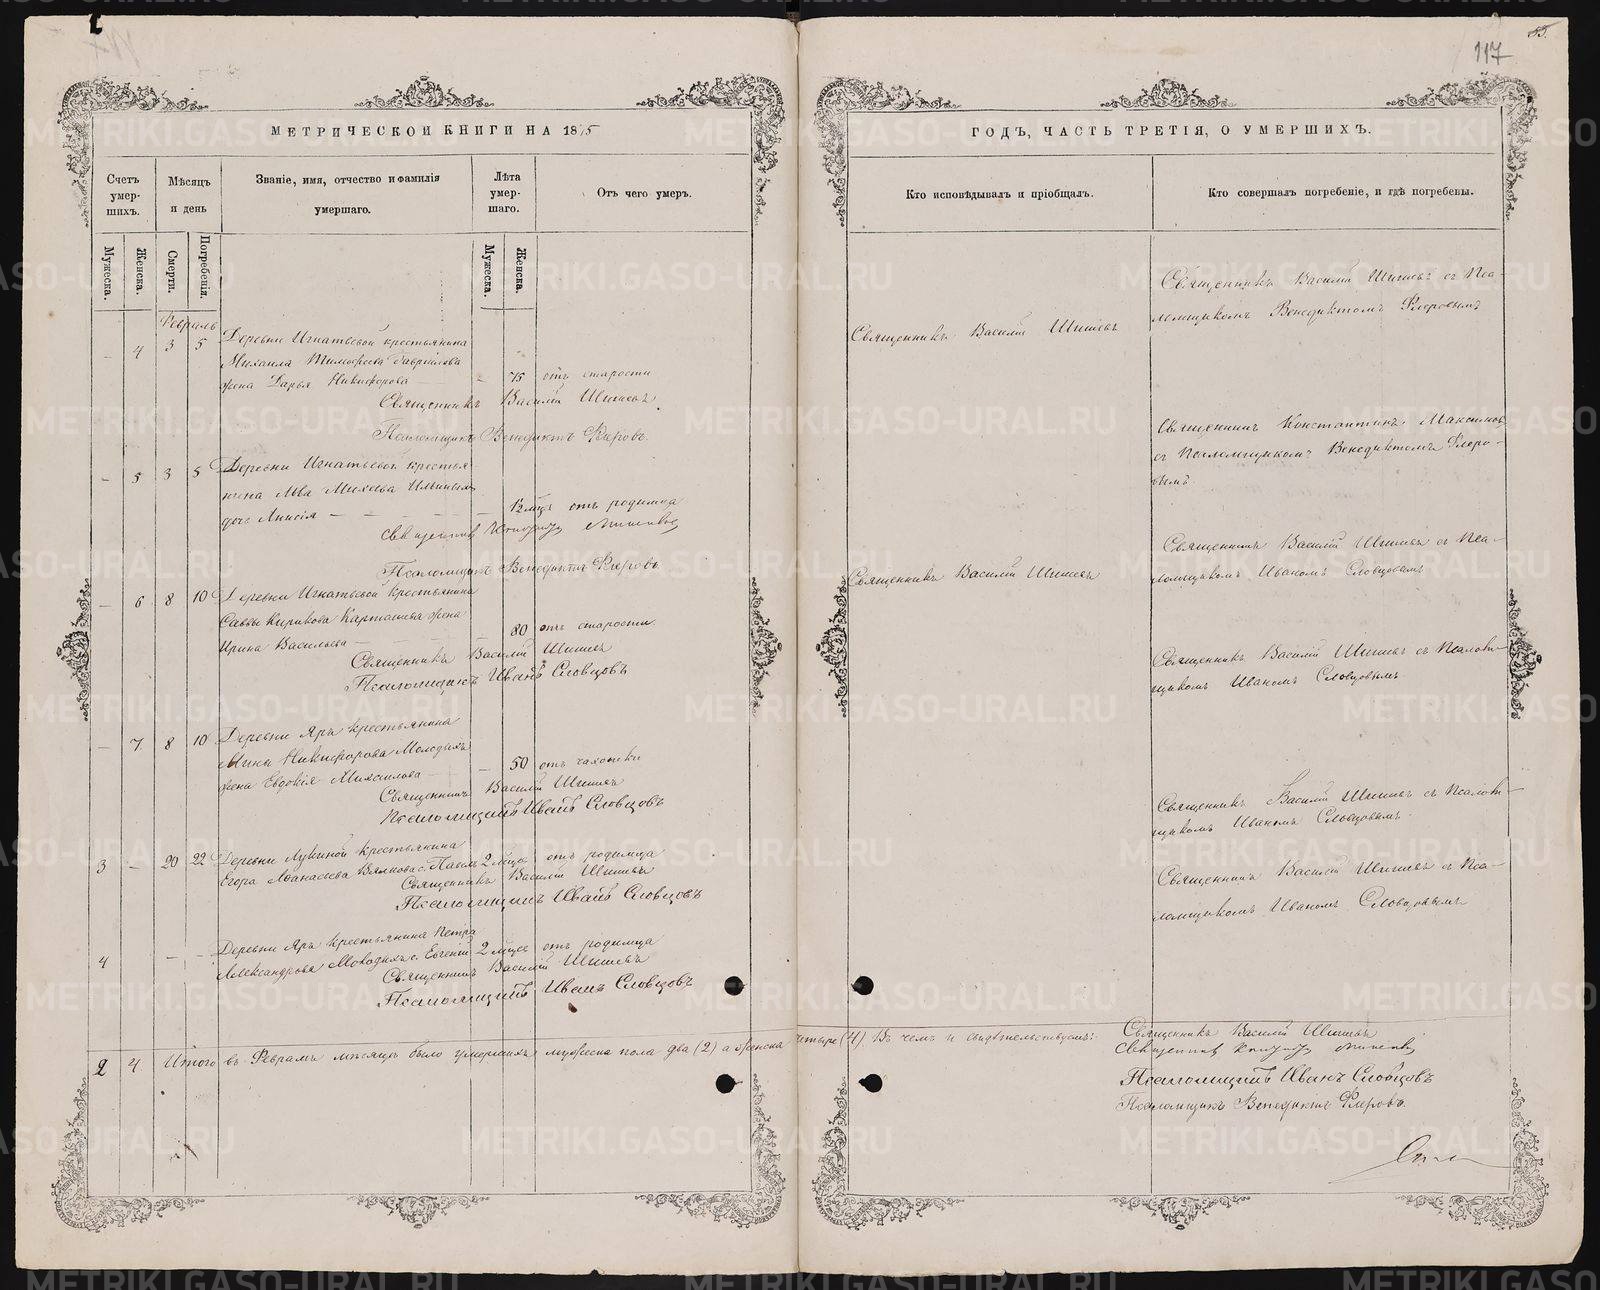 117
МЕТРИЧЕСКОЙ КНИГИ НА 1875
ГОДЪ, ЧАСТЬ ТРЕТІЯ, О УМЕРШИХЪ.
Счетъ умер-
шихъ.
Мѣсяцъ
и день
Званіе, имя, отчество и фамилія
умершаго.
Лѣта
умер-
шаго.
Отъ чего умеръ.
Кто исповѣдывалъ и пріобщалъ.
Кто совершалъ погребеніе, и гдѣ погребены.
Мужеска.
Женска.
Смерти.
Погребенія.
Мужеска.
Женска.
Февраль
4 3 5 Деревни Игнатьевой крестьянина
Михаила Тимофеева Гаврилова
жена Дарья Никифорова 75 отъ старости
Священникъ Василій Шишевъ
Псаломщикъ Венедиктъ Флеровъ.
Священникъ Василій Шишевъ
Священникъ Василій Шишевъ съ Пса-
ломщикомъ Венедиктомъ Флеровымъ
5 3 5 Деревни Игнатьевой крестья-
нина Льва Михеева
дочь Анисія 12 мцъ отъ родимца
Псаломщикъ Венедиктъ Флеровъ.
Священникъ Константинъ
съ Псаломщикомъ Венедиктомъ Флеро-
вымъ
6 8 10 Деревни Игнатьевой крестьянина
Саввы Кирикова Карташева жена
Ирина Васильева 80 отъ старости.
Священникъ Василій Шишевъ
Псаломщикъ Иванъ Словцовъ
Священникъ Василій Шишевъ
Священникъ Василій Шишевъ съ Пса-
ломщикомъ Иваномъ Словцовымъ
7 8 10 Деревни Яръ крестьянина
Мины Никифорова Молодыхъ
жена Евдокія Михайлова 50 отъ чахотки
Священникъ Василій Шишевъ
Псаломщикъ Иванъ Словцовъ
Священникъ Василій Шишевъ съ Псалом-
щикомъ Иваномъ Словцовымъ
3 20 22 Деревни Лукиной крестьянина
Егора Аѳанасьева с. Павелъ 2 мцевъ отъ родимца
Священникъ Василій Шишевъ
Псаломщикъ Иванъ Словцовъ
Священникъ Василій Шишевъ съ Псалом-
щикомъ Иваномъ Словцовымъ.
4 Деревни Яръ крестьянина Петра
Александрова Молодыхъ с. Евгеній 2 мцевъ отъ родимца
Священникъ Василій Шишевъ
Псаломщикъ Иванъ Словцовъ
Священникъ Василій Шишевъ съ Пса-
ломщикомъ Иваномъ Словцовымъ
2 4 Итого въ Февралѣ мѣсяцѣ было умершихъ мужеска пола два (2) а женска четыре (4) Въ чемъ и свидѣтельствуемъ:
Священникъ Василій Шишевъ
Псаломщикъ Иванъ Словцовъ
Псаломщикъ Венедиктъ Флеровъ.
METRIKI.GASO-URAL.RU